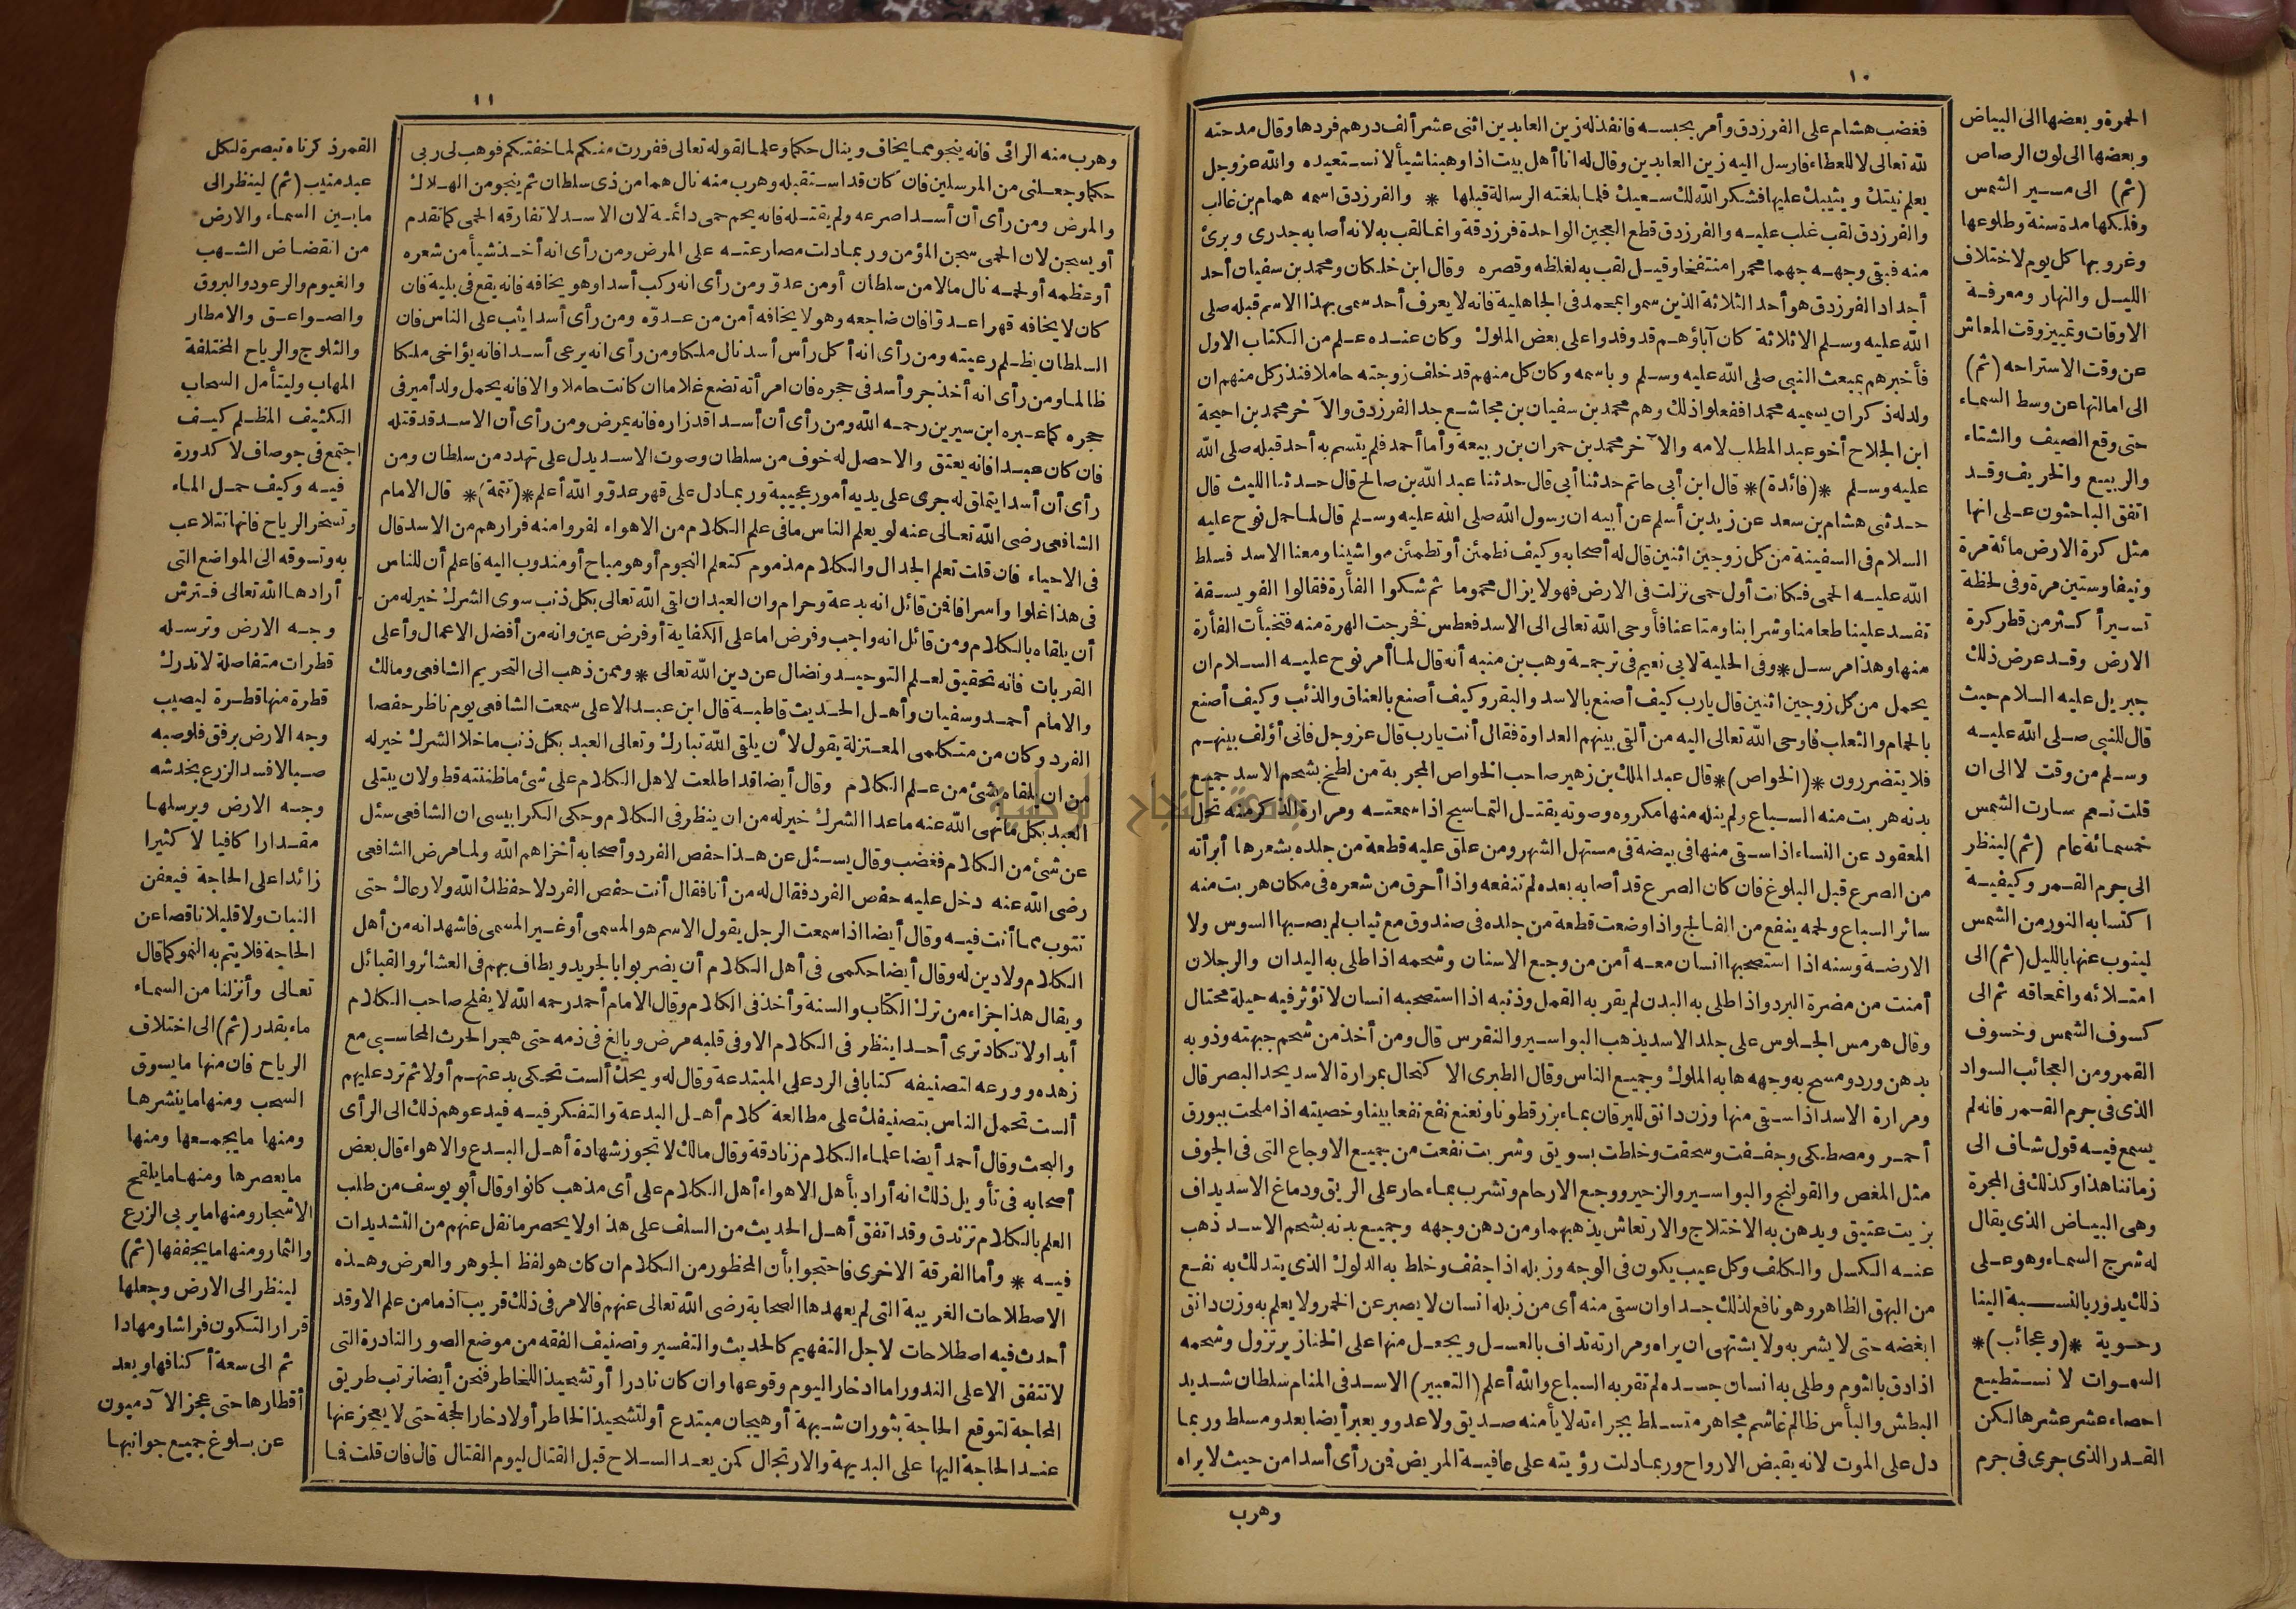 ١٠
فغضب هشام على الفرزدق وأمر بحبسه فانفذ له زين العابدين اثنى عشر ألف درهم فردها وقال مدحته
لله تعالى لا للعطاء فارسل اليه زين العابدين وقال له انا أهل بيت اذا وهبنا شيأ لا نستعيده والله عز وجل
يعلم نيتك ويثيبك عليها فشكر الله لك سعيك فلما بلغته الرسالة قبلها * والفرزدق اسمه همام بن غالب
والفرزدق لقب غلب عليه والفرزدق قطع العجين الواحدة فرزدقة وانما لقب به لانه أصابه جدرى وبرئ
منه فبقى وجهه جهما محمرا منتفخا وقيل لقب به لغلظه وقصره وقال ابن خلكان ومحمد بن سفيان أحد
أجداد الفرزدق هو أحد الثلاثة الذين سموا بمحمد فى الجاهلية فانه لا يعرف أحد سمى بهذا الاسم قبله صلى
الله عليه وسلم الا ثلاثة كان آباؤهم قد وفدوا على بعض الملوك وكان عنده علم من الكتاب الاول
فأخبرهم بمبعث النبى صلى الله عليه وسلم وباسمه وكان كل منهم قد خلف زوجته حاملا فنذر كل منهم ان
ولد له ذكر ان يسميه محمدا ففعلوا ذلك وهم محمد بن سفيان بن مجاشع جد الفرزدق والآخر محمد بن احيحة
ابن الجلاح أخو عبد المطلب لامه والآخر محمد بن حمران بن ربيعة وأما أحمد فلم يتسم به أحد قبله صلى الله
عليه وسلم *(فائدة)* قال ابن أبى حاتم حدثنا أبى قال حدثنا عبد الله بن صالح قال حدثنا الليث قال
حدثنى هشام بن سعد عن زيد بن أسلم عن أبيه ان رسول الله صلى الله عليه وسلم قال لما حمل نوح عليه
السلام فى السفينة من كل زوجين اثنين قال له أصحابه وكيف نطمئن أو تطمئن مواشينا ومعنا الاسد فسلط
الله عليه الحمى فكانت أول حمى نزلت فى الارض فهو لا يزال محموما ثم شكوا الفأرة فقالوا الفويسقة
تفسد علينا طعامنا وشرابنا ومتاعنا فأوحى الله تعالى الى الاسد فعطس فخرجت الهرة منه فتخبأت الفأرة
منها وهذا مرسل * وفى الحلية لابى نعيم فى ترجمة وهب بن منبه أنه قال لما أمر نوح عليه السلام ان
يحمل من كل زوجين اثنين قال يارب كيف أصنع بالاسد والبقر وكيف أصنع بالعناق والذئب وكيف أصنع
بالحمام والثعلب فاوحى الله تعالى اليه من ألقى بينهم العداوة فقال أنت يارب قال عز وجل فانى أؤلف بينهم
فلا يتضررون *(الخواص)* قال عبد الملك بن زهير صاحب الخواص المجربة من لطخ بشحم الاسد جميع
بدنه هربت منه السباع ولم ينله منها مكروه وصوته يقتل التماسيح اذا سمعته ومرارة الذكر منه تحل
المعقود عن النساء اذا سقى منها فى بيضة فى مستهل الشهر ومن علق عليه قطعة من جلده بشعرها أبرأته
من الصرع قبل البلوغ فان كان الصرع قد أصابه بعده لم تنفعه واذا أحرق من شعره فى مكان هربت منه
سائر السباع ولحمه ينفع من الفالج واذا وضعت قطعة من جلده فى صندوق مع ثياب لم يصبها السوس ولا
الارضة وسنه اذا استصحبها انسان معه أمن من وجع الاسنان وشحمه اذا طلى به اليدان والرجلان
أمنت من مضرة البرد واذا طلى به البدن لم يقربه القمل وذنبه اذا استصحبه انسان لا تؤثر فيه حيلة محتال
وقال هرمس الجلوس على جلد الاسد يذهب البواسير والنقرس قال ومن أخذ من شحم جبهته وذوبه
بدهن ورد ومسح به وجهه هابه الملوك وجميع الناس وقال الطبرى الاكتحال بمرارة الاسد يحد البصر قال
ومرارة الاسد اذا سقى منها وزن دانق لليرقان بماء بزرقطونا ونعنع نفع نفعا بينا وخصيته اذا ملحت ببورق
أحمر ومصطكى وجففت وسحقت وخلطت بسويق وشربت نفعت من جميع الاوجاع التى فى الجوف
مثل المغص والقولنج والبواسير والزحير ووجع الارحام وتشرب بماء حار على الريق ودماغ الاسد يداف
بزيت عتيق ويدهن به الاختلاج والارتعاش يذهبهما ومن دهن وجهه وجميع بدنه بشحم الاسد ذهب
عنه الكسل والكلف وكل عيب يكون فى الوجه وزبله اذا جفف وخلط به الدلوك الذى يتدلك به نفع
من البهق الظاهر وهو نافع لذلك جدا وان سقى منه أى من زبله انسان لا يصبر عن الخمر ولا يعلم به وزن دانق
ابغضه حتى لا يشربه ولا يشتهى ان يراه ومرارته تداف بالعسل ويجعل منها على الخنازير تزول وشحمه
اذا دق بالثوم وطلى به انسان جسده لم تقربه السباع والله أعلم (التعبير) الاسد فى المنام سلطان شديد
البطش والبأس ظالم غاشم مجاهر متسلط بجراءته لا يأمنه صديق ولا عدو ويعبر أيضا بعدو مسلط وربما
دل على الموت لانه يقبض الارواح وربما دلت رؤيته على عافية المريض فمن رأى أسدا من حيث لا يراه
وهرب
الحمرة وبعضها الى البياض
وبعضها الى لون الرصاص
(ثم) الى مسير الشمس
وفلكها مدة سنة وطلوعها
وغروبها كل يوم لاختلاف
الليل والنهار ومعرفة
الاوقات وتمييز وقت المعاش
عن وقت الاستراحه (ثم)
الى امالتها عن وسط السماء
حتى وقع الصيف والشتاء
والربيع والخريف وقد
اتفق الباحثون على انها
مثل كرة الارض مائة مرة
ونيفا وستين مرة وفى لحظة
تسير أكثر من قطر كرة
الارض وقد عرض ذلك
جبريل عليه السلام حيث
قال للنبى صلى الله عليه
وسلم من وقت لا الى ان
قلت نعم سارت الشمس
خمسمائة عام (ثم) لينظر
الى جرم القمر وكيفية
اكتسابه النور من الشمس
لينوب عنها بالليل (ثم) الى
امتلائه وانمحاقه ثم الى
كسوف الشمس وخسوف
القمر ومن العجائب السواد
الذى فى جرم القمر فانه لم
يسمع فيه قول شاف الى
زماننا هذا وكذلك فى المجرة
وهى البياض الذى يقال
له شرج السماء وهو على
ذلك يدور بالنسبة الينا
رحوية *(وعجائب)*
السموات لا نستطيع
احصاء عشر عشرها لكن
القدر الذى جرى فى جرم
١١
وهرب منه الرائى فانه ينجو مما يخاف وينال حكما وعلما لقوله تعالى ففررت منكم لما خفتكم فوهب لى ربى
حكما وجعلنى من المرسلين فان كان قد استقبله وهرب منه نال هما من ذى سلطان ثم ينجو من الهلاك
والمرض ومن رأى أن أسدا صرعه ولم يقتله فانه يحم حمى دائمة لان الاسد لا تفارقه الحمى كما تقدم
أو يسجن لان الحمى سجن المؤمن وربما دلت مصارعته على المرض ومن رأى انه أخذ شيأ من شعره
أو عظمه أو لحمه نال مالا من سلطان أو من عدوّ ومن رأى انه ركب أسدا وهو يخافه فانه يقع فى بلية فان
كان لا يخافه قهر اعدوّا فان ضاجعه وهو لا يخافه أمن من عدوّه ومن رأى أسدا يثب على الناس فان
السلطان يظلم رعيته ومن رأى انه أكل رأس أسد نال ملكا ومن رأى انه يرعى أسدا فانه يؤاخى ملكا
ظالما ومن رأى انه أخذ جرو أسد فى حجره فان امرأته تضع غلاما ان كانت حاملا والا فانه يحمل ولد أمير فى
حجره كما عبره ابن سيرين رحمه الله ومن رأى أن أسدا قد زاره فانه يمرض ومن رأى أن الاسد قد قتله
فان كان عبدا فانه يعتق والا حصل له خوف من سلطان وصوت الاسد يدل على تهدد من سلطان ومن
رأى أن أسدا يتملق له جرى على يديه أمور عجيبة وربما دل على قهر عدوّ والله أعلم *(تتمة)* قال الامام
الشافعى رضى الله تعالى عنه لو يعلم الناس ما فى علم الكلام من الاهواء لفروا منه فرارهم من الاسد قال
فى الاحياء فان قلت تعلم الجدال والكلام مذموم كتعلم النجوم أو هو مباح أو مندوب اليه فاعلم أن للناس
فى هذا غلوا واسرافا فمن قائل انه بدعة وحرام وان العبد ان لقى الله تعالى بكل ذنب سوى الشرك خير له من
أن يلقاه بالكلام ومن قائل انه واجب وفرض اما على الكفاية أو فرض عين وانه من أفضل الاعمال وأعلى
القربات فانه تحقيق لعلم التوحيد ونضال عن دين الله تعالى * وممن ذهب الى التحريم الشافعى ومالك
والامام أحمد وسفيان وأهل الحديث قاطبة قال ابن عبد الاعلى سمعت الشافعى يوم ناظر حفصا
الفرد وكان من متكلمى المعتزلة يقول لأن يلقى الله تبارك وتعالى العبد بكل ذنب ما خلا الشرك خير له
من ان يلقاه بشئ من علم الكلام وقال أيضا قد اطلعت لاهل الكلام على شئ ما ظننته قط ولان يبتلى
العبد بكل ما نهى الله عنه ما عدا الشرك خير له من ان ينظر فى الكلام وحكى الكرابيسى ان الشافعى سئل
عن شئ من الكلام فغضب وقال يسئل عن هذا حفص الفرد وأصحابه أخزاهم الله ولما مرض الشافعى
رضى الله عنه دخل عليه حفص الفرد فقال له من أنا فقال أنت حفص الفرد لا حفظك الله ولا رعاك حتى
تتوب مما أنت فيه وقال أيضا اذا سمعت الرجل يقول الاسم هو المسمى أو غير المسمى فاشهد انه من أهل
الكلام ولا دين له وقال أيضا حكمى فى أهل الكلام أن يضربوا بالجريد ويطاف بهم فى العشائر والقبائل
ويقال هذا جزاء من ترك الكتاب والسنة وأخذ فى الكلام وقال الامام أحمد رحمه الله لا يفلح صاحب الكلام
أبدا ولا تكاد ترى أحدا ينظر فى الكلام الا وفى قلبه مرض وبالغ فى ذمه حتى هجر الحرث المحاسبى مع
زهده وورعه لتصنيفه كتابا فى الرد على المبتدعة وقال له ويحك ألست تحكى بدعتهم أولا ثم ترد عليهم
ألست تحمل الناس بتصنيفك على مطالعة كلام أهل البدعة والتفكر فيه فيدعوهم ذلك الى الرأى
والبحث وقال أحمد أيضا علماء الكلام زنادقة وقال مالك لا تجوز شهادة أهل البدع والاهواء قال بعض
أصحابه فى تأويل ذلك انه أراد بأهل الاهواء أهل الكلام على أى مذهب كانوا وقال أبو يوسف من طلب
العلم بالكلام تزندق وقد اتفق أهل الحديث من السلف على هذا ولا يحصر ما نقل عنهم من التشديدات
فيه * وأما الفرقة الاخرى فاحتجوا بأن المحظور من الكلام ان كان هو لفظ الجوهر والعرض وهذه
الاصطلاحات الغريبة التى لم يعهدها الصحابة رضى الله تعالى عنهم فالامر فى ذلك قريب اذ ما من علم الا وقد
أحدث فيه اصطلاحات لاجل التفهيم كالحديث والتفسير وتصنيف الفقه من موضع الصور النادرة التى
لا تتفق الا على الندور اما ادخارا ليوم وقوعها وان كان نادرا أو تشحيذا للخاطر فنحن أيضا نرتب طريق
المحاجة لتوقع الحاجة بثوران شبهة أو هيجان مبتدع أو لتشحيذ الخاطر أو لادخار الحجة حتى لا يعجز عنها
عند الحاجة اليها على البديهة والارتجال كمن يعد السلاح قبل القتال ليوم القتال قال فان قلت فما
القمر ذكرناه تبصرة لكل
عبد منيب (ثم) لينظر الى
ما بين السماء والارض
من انقضاض الشهب
والغيوم والرعود والبروق
والصواعق والامطار
والثلوج والرياح المختلفة
المهاب وليتأمل السحاب
الكثيف المظلم كيف
اجتمع فى جو صاف لا كدورة
فيه وكيف حمل الماء
وتسخر الرياح فانها تتلاعب
به وتسوقه الى المواضع التى
أرادها الله تعالى فترش
وجه الارض وترسله
قطرات متفاصلة لا تدرك
قطرة منها قطرة ليصيب
وجه الارض برفق فلو صبه
صبا لافسد الزرع بخدشه
وجه الارض ويرسلها
مقدارا كافيا لا كثيرا
زائدا على الحاجة فيعفن
النبات ولا قليلا ناقصا عن
الحاجة فلا يتم به النمو كما قال
تعالى وأنزلنا من السماء
ماء بقدر (ثم) الى اختلاف
الرياح فان منها ما يسوق
السحب ومنها ما ينشرها
ومنها ما يجمعها ومنها
ما يعصرها ومنها ما يلقح
الاشجار ومنها ما يربى الزرع
والثمار ومنها ما يجففها (ثم)
لينظر الى الارض وجعلها
قرارا لتكون فراشا ومهادا
ثم الى سعة أكنافها وبعد
أقطارها حتى عجز الآدميون
عن بلوغ جميع جوانبها